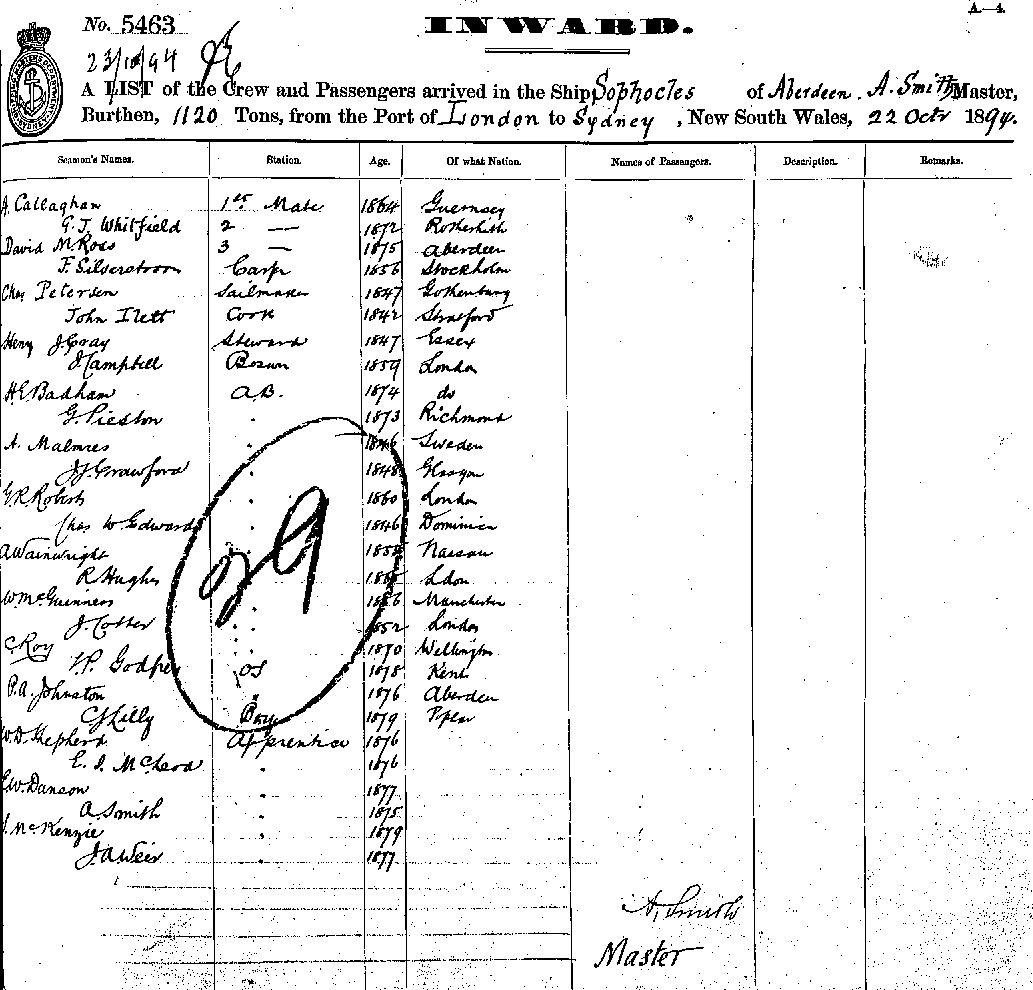 A.—4.
No. 5463
INWARD.
23/10/94
A LIST of the Crew and Passengers arrived in the Ship Sophocles of Aberdeen. A. Smith Master,
Burthen, 1120 Tons, from the Port of London to Sydney, New South Wales, 22 Octr 1894.
Seamen's Names. Station. Age. Of what Nation. Names of Passengers. Description. Remarks.
A. Callaghan 1st Mate 1864 Guernsey
G. J. Whitfield 2 — 1872 Rotherhith
David M. Ross 3 — 1875 Aberdeen
F. Silverstroom Carp 1856 Stockholm
Chas Petersen Sailmaker 1847 Gothenburg
John Ilett Cook 1842 Stratford
Henry J Gray Steward 1847 Essex
J. Campbell Bosun 1859 London
H. E. Badham A.B. 1874 do
G. Pieston . 1873 Richmond
A. Malmres . 1846 Sweden
J. J. Crawford . 1848 Glasgow
G. R. Roberts . 1860 London
Chas W Edwards . 1846 Dominica
A Wainwright . Nassau
R Hughes . Ldon
Wm McGuinness . 1866 Manchester
J. Cotter . 1852 London
C Roy . 1870 Wellington
Godfrey OS 1878 Kent
P. A. Johnston . 1876 Aberdeen
C J Lilly Boy 1879
W. D. Shepherd Apprentice 1876
E. J. McLeod . 1876
E. W. Danson . 1877
A. Smith . 1875
J. McKenzie . 1879
J. A Weir . 1877
29
A. Smith
Master